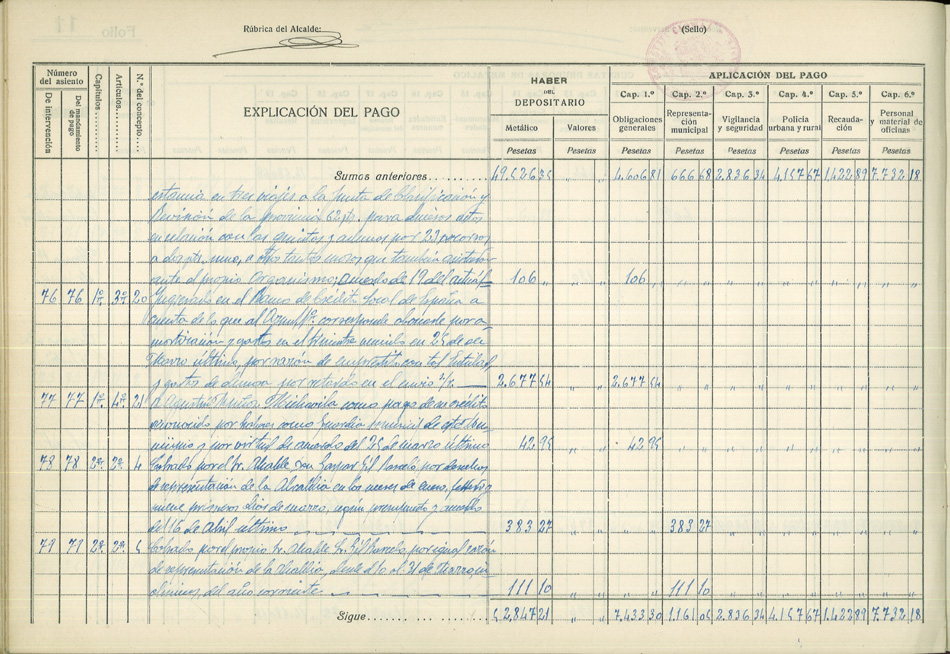 Folio 11
Rúbrica del Alcalde:
(Sello)
Número del asiento
De intervención
Del mandamiento de pago
Capítulos
Artículos
N.º del concepto
EXPLICACIÓN DEL PAGO
HABER DEL DEPOSITARIO
Metálico
Valores
Pesetas
Pesetas
APLICACIÓN DEL PAGO
Cap. 1.º Cap. 2.º Cap. 3.º Cap. 4.º Cap. 5.º Cap. 6.º
Obligaciones generales
Representación municipal
Vigilancia y seguridad
Policía urbana y rural
Recaudación
Personal y material de oficinas
Pesetas Pesetas Pesetas Pesetas Pesetas Pesetas
Sumas anteriores 49.526 35 4.606 81 666 68 2.836 34 4.157 67 1.422 89 7.732 18
estancia en tres viajes a la Junta de Clasificación y
Revisión de la provincia 62 pts. para diversos actos
en relación con las quintas y además por 22 socorros
a dos pts. uno, a otros tantos mozos que también
ante el propio Organismo, acuerdo de 12 del actual 106 106
76 76 1º 3º 20 Ingresado en el Banco de Crédito Local de España a
cuenta de lo que al Ayunt.º corresponde abonarle por a-
mortización y gastos en el trimestre vencido en 25 de
Marzo último, por razón de empréstito con tal Entidad
y gastos de demora por retardo en el envío 2.677 54 2.677 54
77 77 1º 4º 21 A Agustín como pago de un crédito
reconocido por haberes como Guardia municipal
y por virtud de acuerdo del 25 de marzo último 42 95 42 95
78 78 2º 2º 4 Cobrado por el Sr. Alcalde Don Gaspar Gil por
de representación de la Alcaldía en los meses de enero, febrero y
nueve primeros días de marzo, según presupuesto y acuerdo
del 16 de Abril último 383 27 383 27
79 79 2º 2º 5 Cobrado por el propio Sr. Alcalde Sr. Gil por igual razón
de representación de la Alcaldía, desde el 10 al 31 de Marzo, in-
clusives, del año corriente 111 10 111 10
Sigue 52.847 21 7.433 30 1.161 05 2.836 34 4.157 67 1.422 89 7.732 18